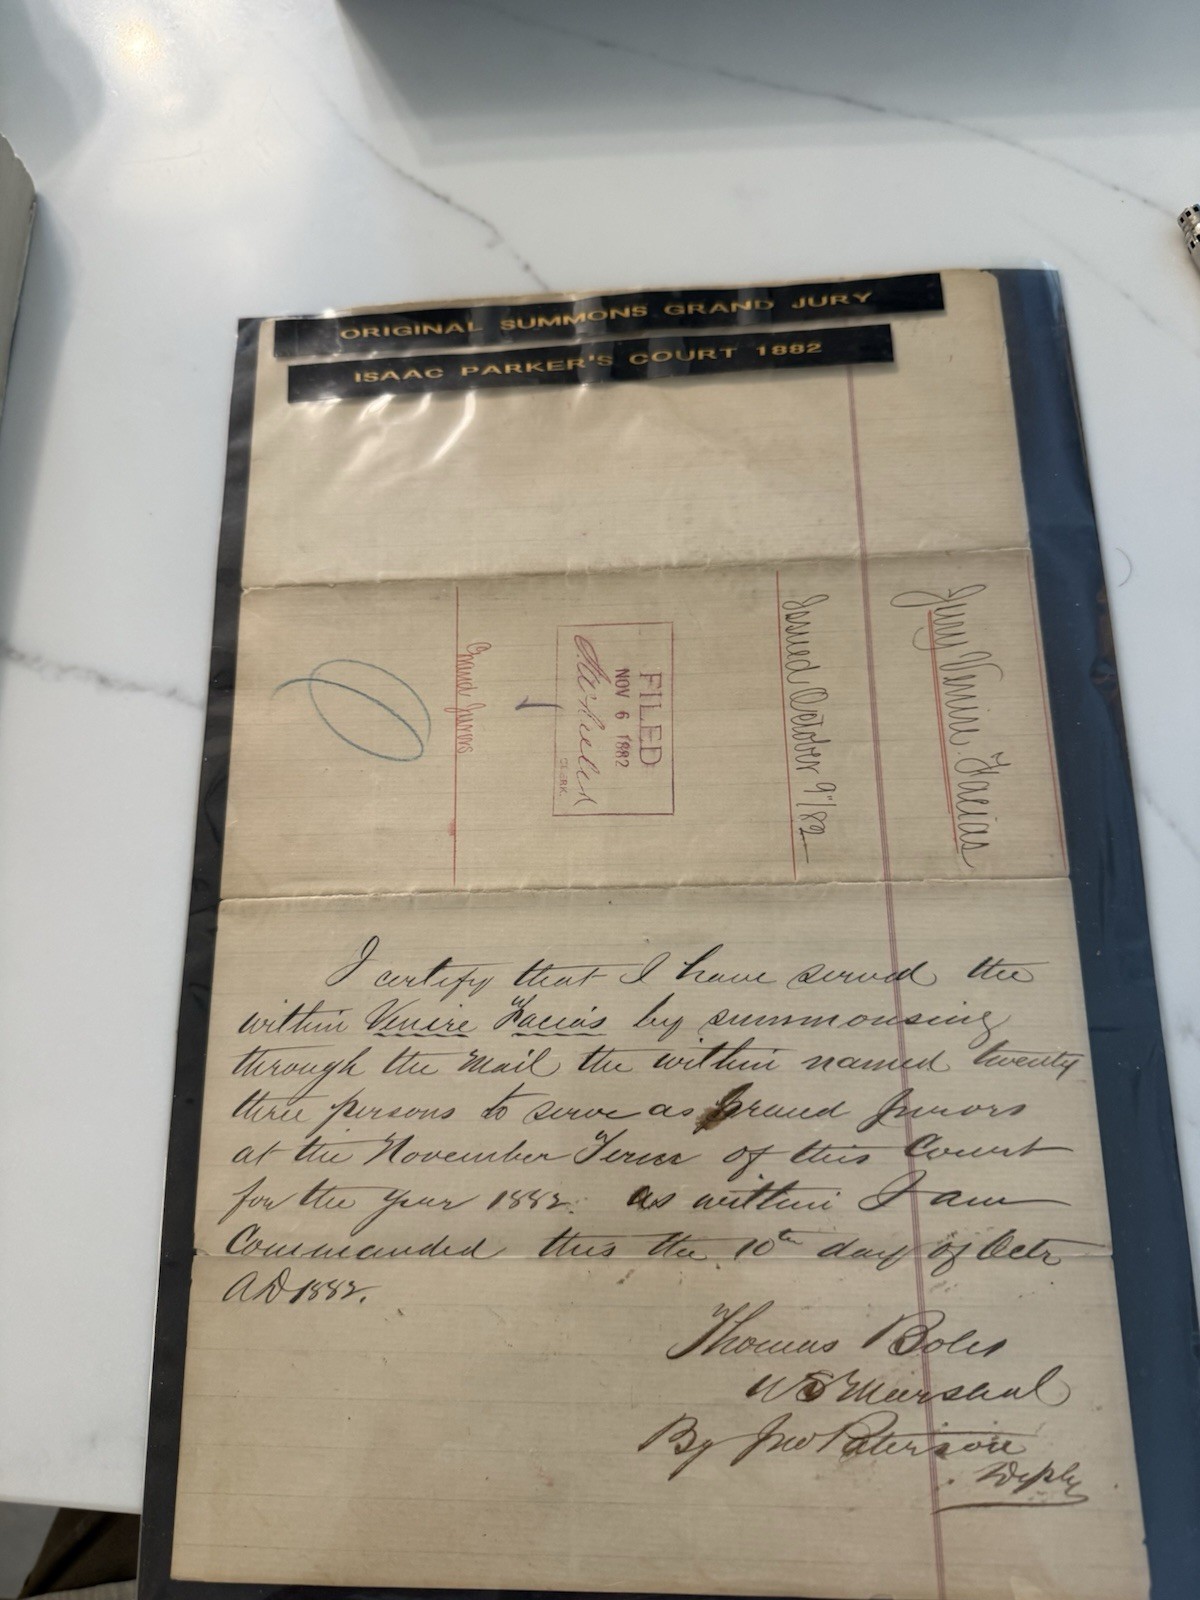 ORIGINAL SUMMONS GRAND JURY
ISAAC PARKER'S COURT 1882
Jury Venire Facias
Issued October 9"/82
FILED
NOV 6 1882
CLERK.
Grand Jurors
I certify that I have served the
within Venire Facias by summonsing
through the Mail the within named twenty
three persons to serve as Grand Jurors
at the November Term of this Court
for the year 1882. as within I am
Commanded this the 10th day of Octr
AD 1882.
Thomas Boles
US Marshal
By Jno Paterson
Depty